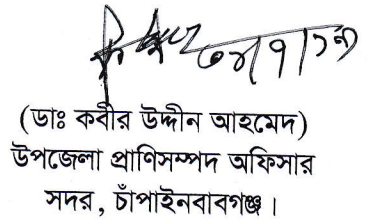 (ডাঃ কবীর উদ্দীন আহমেদ)
উপজেলা প্রাণিসম্পদ অফিসার
সদর, চাঁপাইনবাবগঞ্জ।